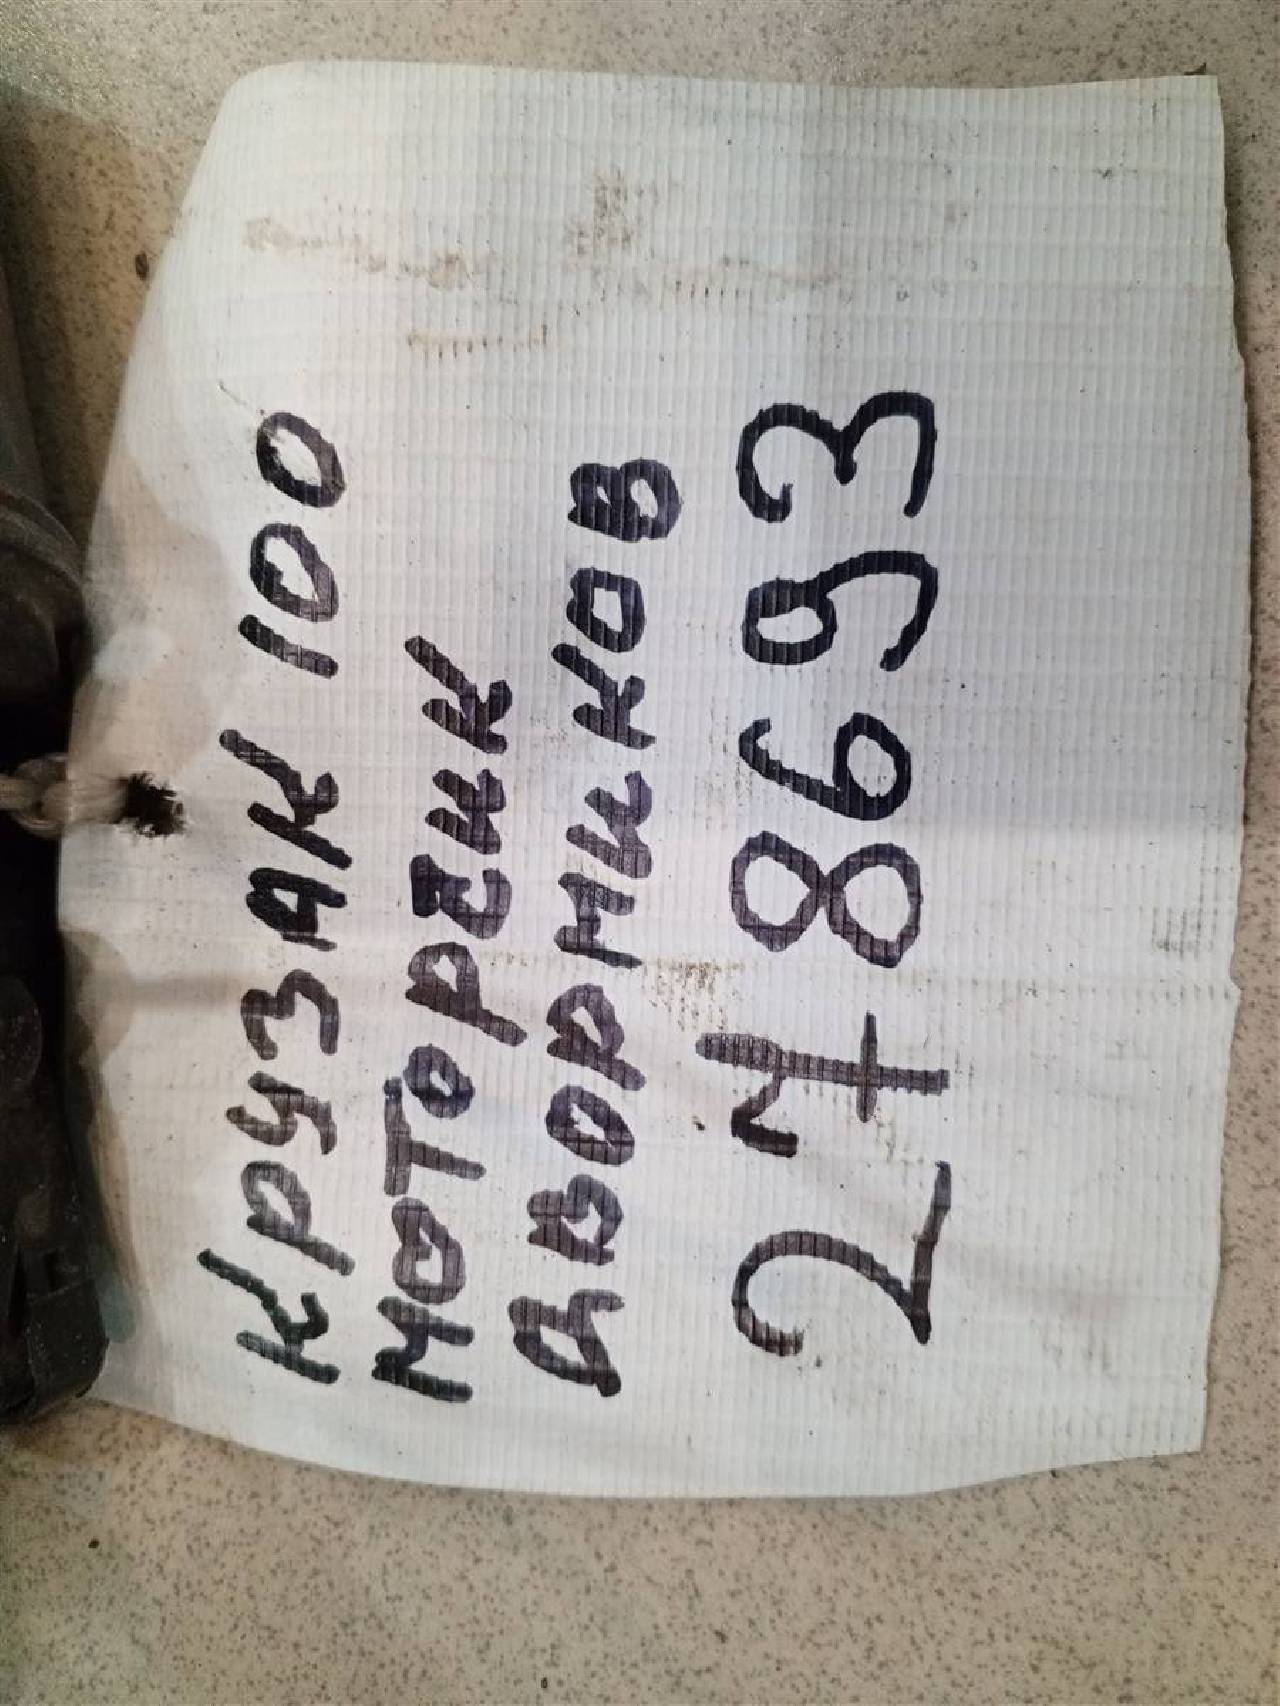 КРУЗАК 100
МОТОРЧИК
ДВОРНИКОВ
278693